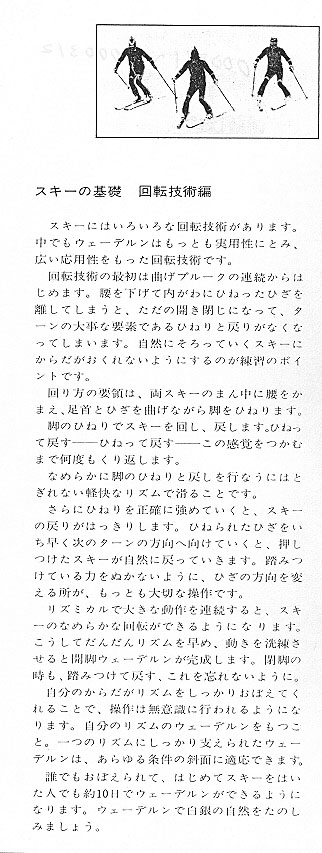 スキーの基礎　回転技術編
スキーにはいろいろな回転技術があります。
中でもウェーデルンはもっとも実用性にとみ、
広い応用性をもった回転技術です。
回転技術の最初は曲げプルークの連続からは
じめます。腰を下げて内がわにひねったひざを
離してしまうと、ただの開き閉じになって、タ
ーンの大事な要素であるひねりと戻りがなくな
ってしまいます。自然にそろっていくスキーに
からだがおくれないようにするのが練習のポイ
ントです。
回り方の要領は、両スキーのまん中に腰をか
まえ、足首とひざを曲げながら脚をひねります。
脚のひねりでスキーを回し、戻します。ひねっ
て戻す――ひねって戻す――この感覚をつかむ
まで何度もくり返します。
なめらかに脚のひねりと戻しを行なうにはと
ぎれない軽快なリズムで滑ることです。
さらにひねりを正確に強めていくと、スキー
の戻りがはっきりします。ひねられたひざをい
ち早く次のターンの方向へ向けていくと、押し
つけたスキーが自然に戻っていきます。踏みつ
けている力をぬかないように、ひざの方向を変
える所が、もっとも大切な操作です。
リズミカルで大きな動作を連続すると、スキ
ーのなめらかな回転ができるようになります。
こうしてだんだんリズムを早め、動きを洗練さ
せると開脚ウェーデルンが完成します。閉脚の
時も、踏みつけて戻す、これを忘れないように。
自分のからだがリズムをしっかりおぼえてく
れることで、操作は無意識に行われるようにな
ります。自分のリズムのウェーデルンをもつこ
と。一つのリズムにしっかり支えられたウェー
デルンは、あらゆる条件の斜面に適応できます。
誰でもおぼえられて、はじめてスキーをはい
た人でも約10日でウェーデルンができるように
なります。ウェーデルンで白銀の自然をたのし
みましょう。